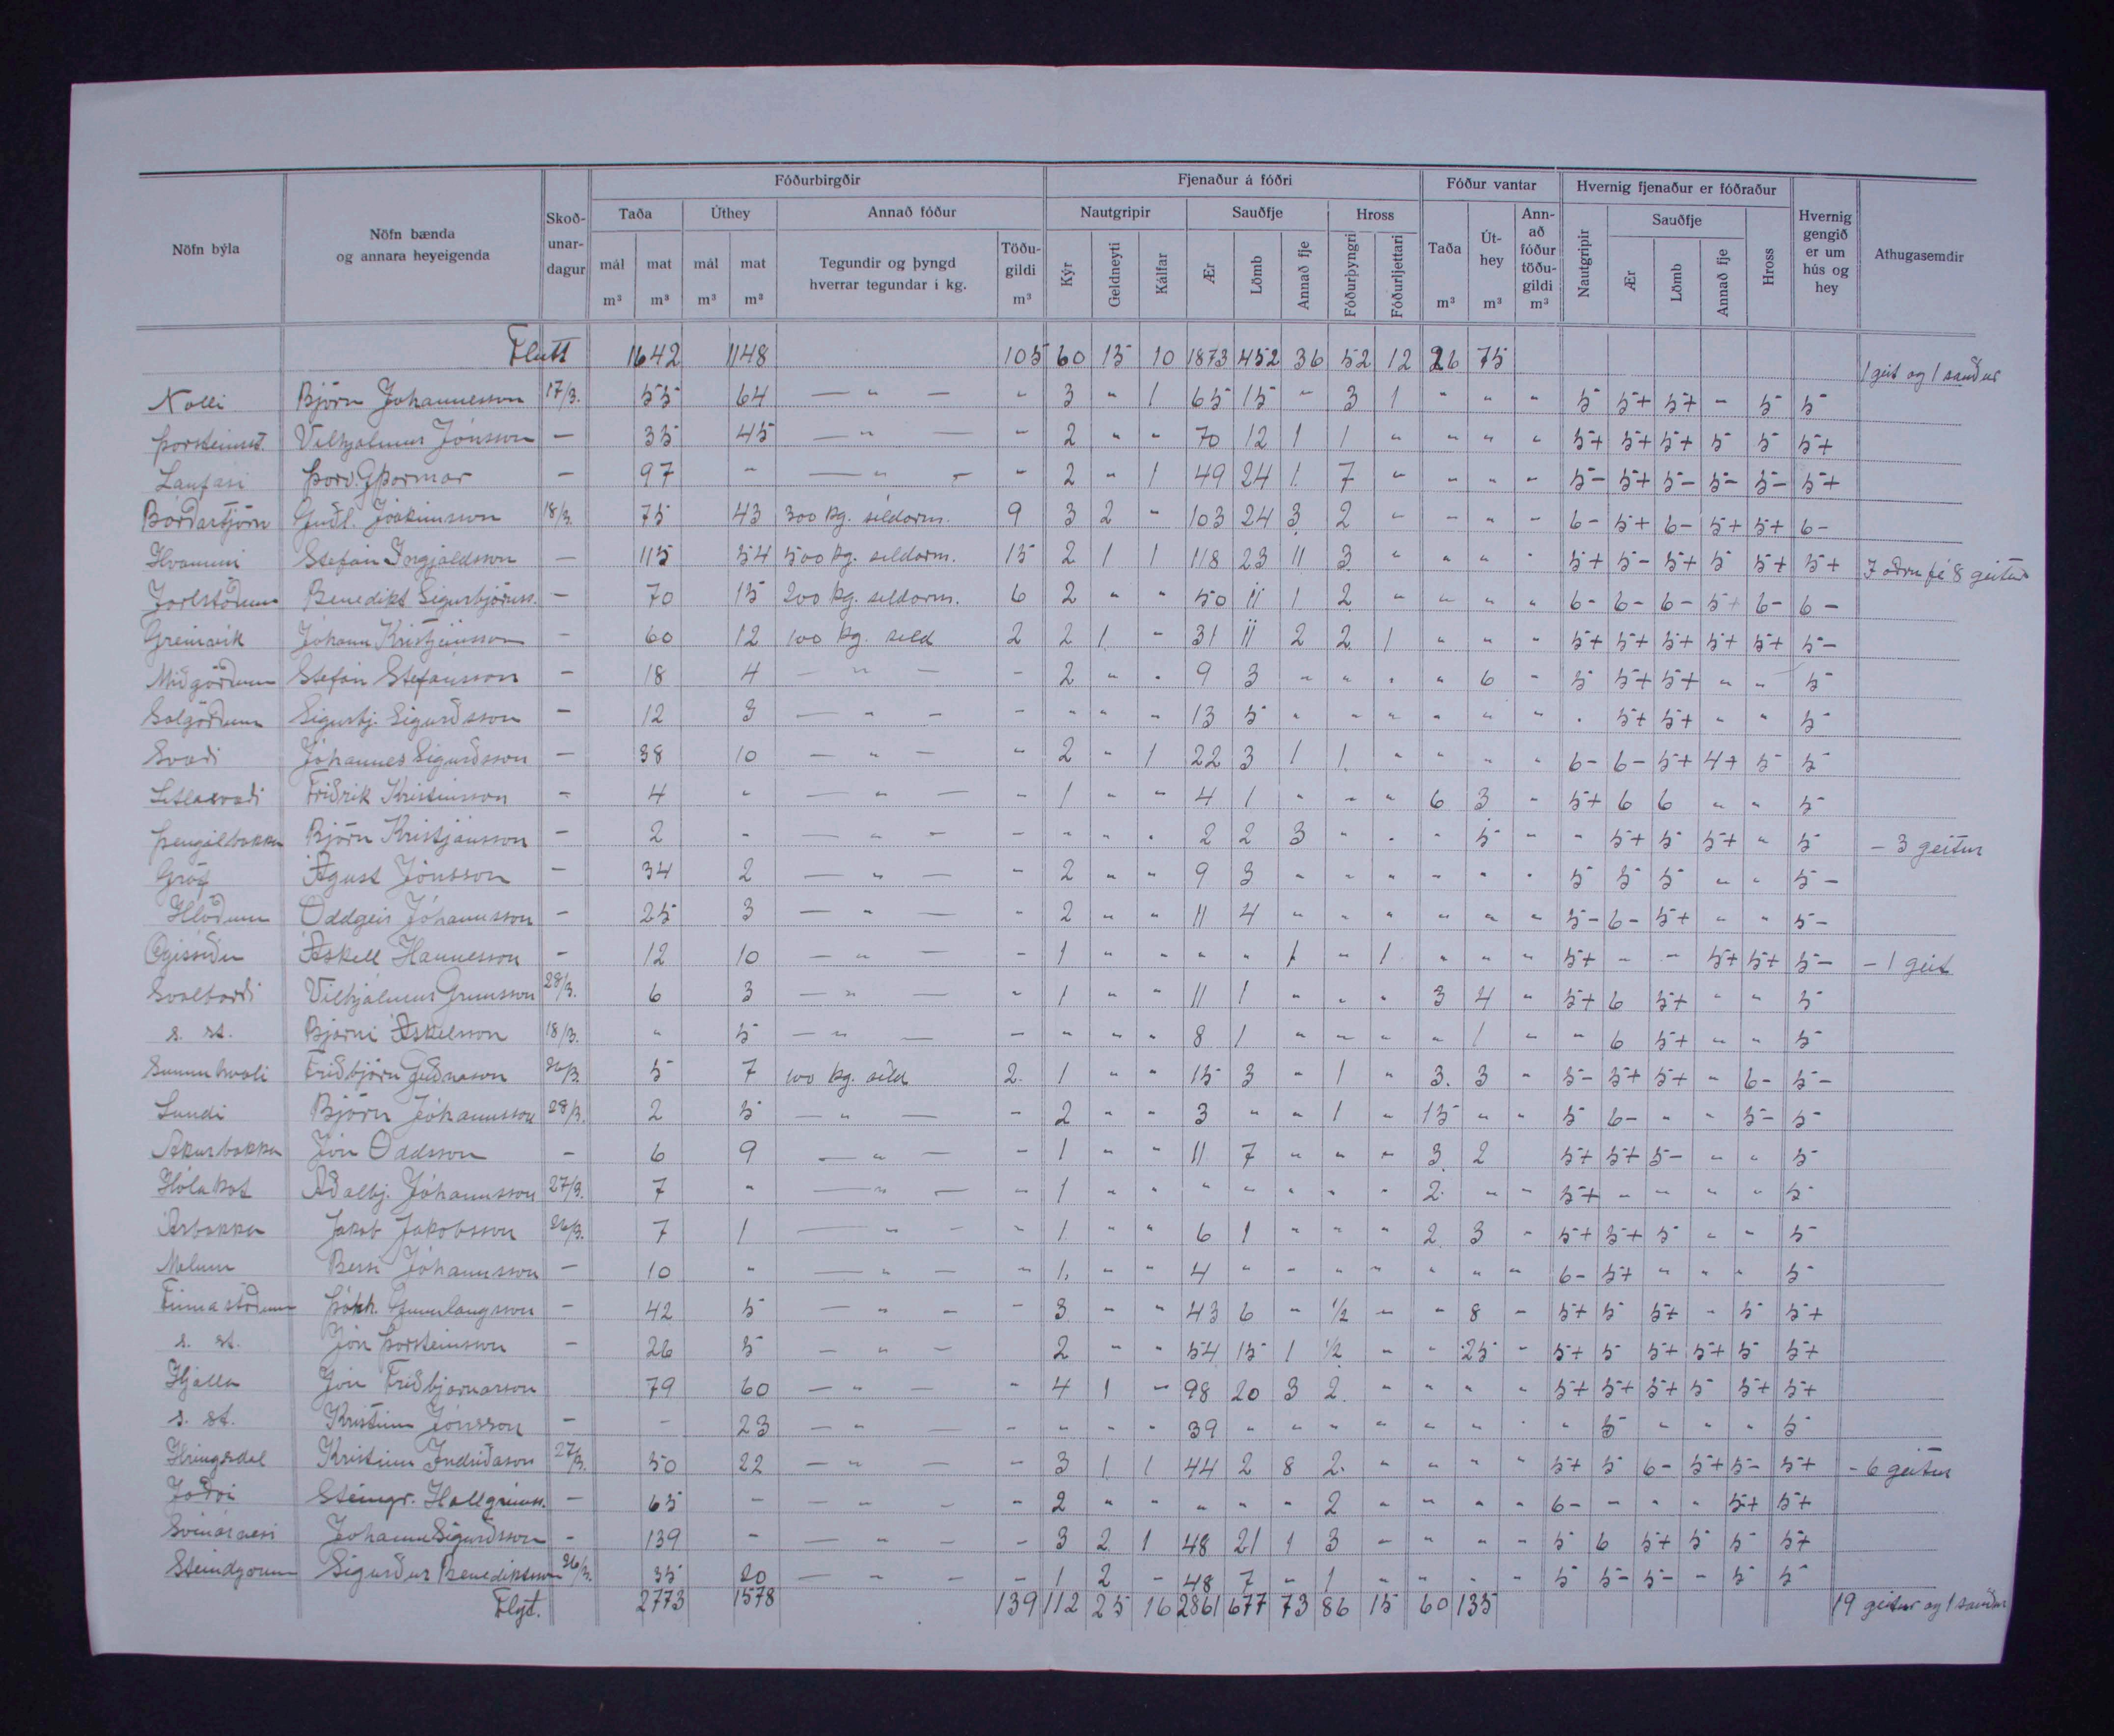 Nöfn býla | Nöfn bænda og annara heyeigenda | Skoð-unar-dagur | Fóðurbirgðir | Fjenaður á fóðri | Fóður vantar | Hvernig fjenaður er fóðraður | Hvernig gengið er um hús og hey | Athugasemdir
Taða | Úthey | Annað fóður | Nautgripir | Sauðfje | Hross | Taða m³ | Út-hey m³ | Ann-að fóður töðu-gildi m³ | Nautgripir | Sauðfje | Hross
mál m³ | mat m³ | mál m³ | mat m³ | Tegundir og þyngd hverrar tegundar í kg. | Töðu-gildi m³ | Kýr | Geldneyti | Kálfar | Ær | Lömb | Annað fje | Fóðurþyngri | Fóðurljettari | Ær | Lömb | Annað fje
Flutt 1642 1148 105 60 15 10 1873 452 36 52 12 26 75 1 geit og 1 sauður
Nolli Björn Jóhannesson 17/3. 55 64 — " — " 3 " 1 65 15 " 3 1 " " " 5 5+ 5+ - 5 5
Þorsteinsst. Vilhjálmur Jónsson — 35 45 — " — " 2 " " 70 12 1 1 " " " " 5+ 5+ 5+ 5 5 5+
Laufási Þorv. G Þormar — 97 " — " — " 2 " 1 49 24 1 7 " " " " 5- 5+ 5- 5- 5- 5+
Borðartjörn Guðl. Jóakimsson 18/3. 75 43 300 kg. síldarm. 9 3 2 - 103 24 3 2 " " " " 6- 5+ 6- 5+ 5+ 6-
Hvammi Stefán Ingjaldsson — 115 54 500 kg. síldarm. 15 2 1 1 118 23 11 3 " " " " 5+ 5- 5+ 5 5+ 5+ Í öðru fé 8 geitur
Jarlstöðum Benedikt Sigurbjörnss. — 70 15 200 kg. síldarm. 6 2 " " 50 11 1 2 " " " " 6- 6- 6- 5+ 6- 6-
Grenivík Jóhann Kristjinsson — 60 12 100 kg. síld 2 2 1 - 31 11 2 2 1 " " " 5+ 5+ 5+ 5+ 5+ 5-
Miðgörðum Stefán Stefánsson — 18 4 — " — - 2 " " 9 3 " " " " 6 - 5 5+ 5+ " " 5
Solgörðum Sigurbj. Sigurðsson — 12 3 — " — - " " " 13 5 " " " " " " " 5+ 5+ " " 5
Svaði Jóhannes Sigurðsson — 38 10 — " — " 2 " 1 22 3 1 1 " " " " 6- 6- 5+ 4+ 5 5
Litlasvaði Friðrik Kristinsson — 4 " — " — - 1 " " 4 1 " " " 6 3 - 5+ 6 6 " " 5
Þengilbakka Björn Kristjánsson — 2 - — " — - " " " 2 2 3 " " " 5 " " 5+ 5 5+ " 5 - 3 geitur
Gröf Ágúst Jónsson — 34 2 — " — - 2 " " 9 3 " " " " " " 5 5 5 " " 5-
Hlöðum Oddgeir Jóhannsson — 25 3 — " — " 2 " " 11 4 " " " " " " 5- 6- 5+ " " 5-
Ægissíðu Áskell Hannesson — 12 10 — " — - 1 " " " " 1 " 1 " " " 5+ - - 5+ 5+ 5- - 1 geit
Svalbarði Vilhjálmur Grímsson 28/3. 6 3 — " — " 1 " " 11 1 " " " 3 4 " 5+ 6 5+ " " 5
s. st. Bjarni Áskelsson 18/3. " 5 — " — - " " " 8 1 " " " " 1 " - 6 5+ " " 5
Sunnuhvoli Friðbjörn Guðnason 26/3. 5 7 100 kg. síld 2. 1 " " 15 3 " 1 " 3. 3 - 5- 5+ 5+ - 6- 5-
Lundi Björn Jóhannsson 28/3. 2 5 — " — - 2 " " 3 " " 1 " 15 " " 5 6- " " 5- 5
Akurbakka Jón Oddsson — 6 9 — " — - 1 " " 11 7 " " " 3 2 5+ 5+ 5- " " 5
Hólakot Aðalbj. Jóhannsson 27/3. 7 " — " — - 1 " " " " " " " 2. " " 5+ " " " " 5
Árbakka Jakob Jakobsson 26/3. 7 1 — " — " 1 " " 6 1 " " " 2 3 - 5+ 5+ 5 " - 5
Melum Bessi Jóhannsson — 10 " — " — " 1. " " 4 " " " " " " " 6- 5+ " " " 5
Finnastöðum Þórh. Gunnlaugsson — 42 5 — " — - 3 " " 43 6 - 1/2 - - 8 - 5+ 5 5+ - 5 5+
s. st. Jón Þorsteinsson — 26 5 — " — 2 " " 54 15 1 1/2 - " 25 - 5+ 5 5+ 5+ 5 5+
Hjalla Jón Friðbjarnarson 79 60 — " — " 4 1 - 98 20 3 2. " " " " 5+ 5+ 5+ 5 5+ 5+
s. st. Kristinn Jónsson — - 23 — " — - " " " 39 " " " " " " " " 5 " " " 5
Hringsdal Kristinn Indriðason 27/3. 50 22 — " — - 3 1 1 44 2 8 2. " " " " 5+ 5 6- 5+ 5- 5+ - 6 geitur
Jaðri Steingr. Hallgrímss. — 65 - — " — - 2 " " " " " 2 " " " " 6- - " " 5+ 5+
Svínárnesi Jóhann Sigurðsson — 139 - — " — - 3 2 1 48 21 1 3 - " " " 5 6 5+ 5 5 5+
Steindyrum Sigurður Benediktsson 26/3. 35 20 — " — - 1 2 - 48 7 - 1 " " " " 5 5- 5- - 5 5
Flyt. 2773 1578 139 112 25 16 2861 677 73 86 15 60 135 19 geitur og 1 sauður